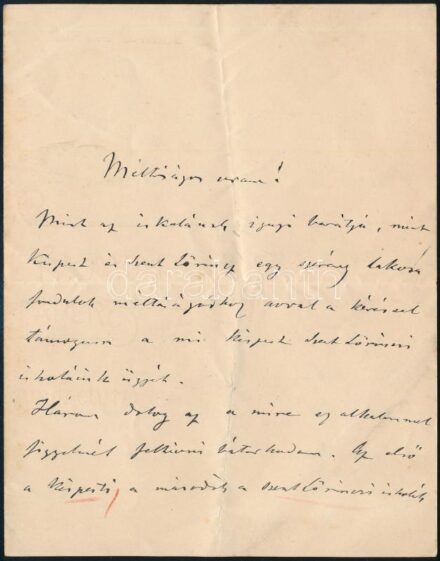 Méltóságos uram!
Mint az iskolának igazi barátja, mint
Kispest és Szent Lőrincz egy szerény lakosa
fordulok méltóságodhoz avval a kéréssel
támogassa a mi Kispest Szent Lőrinczi
iskoláink ügyét.
Három dolog az a mire ez alkalommal
figyelmét felhívni bátorkodom. Az első
a kispesti, a második a szent Lőrinczi iskolák
darabanth